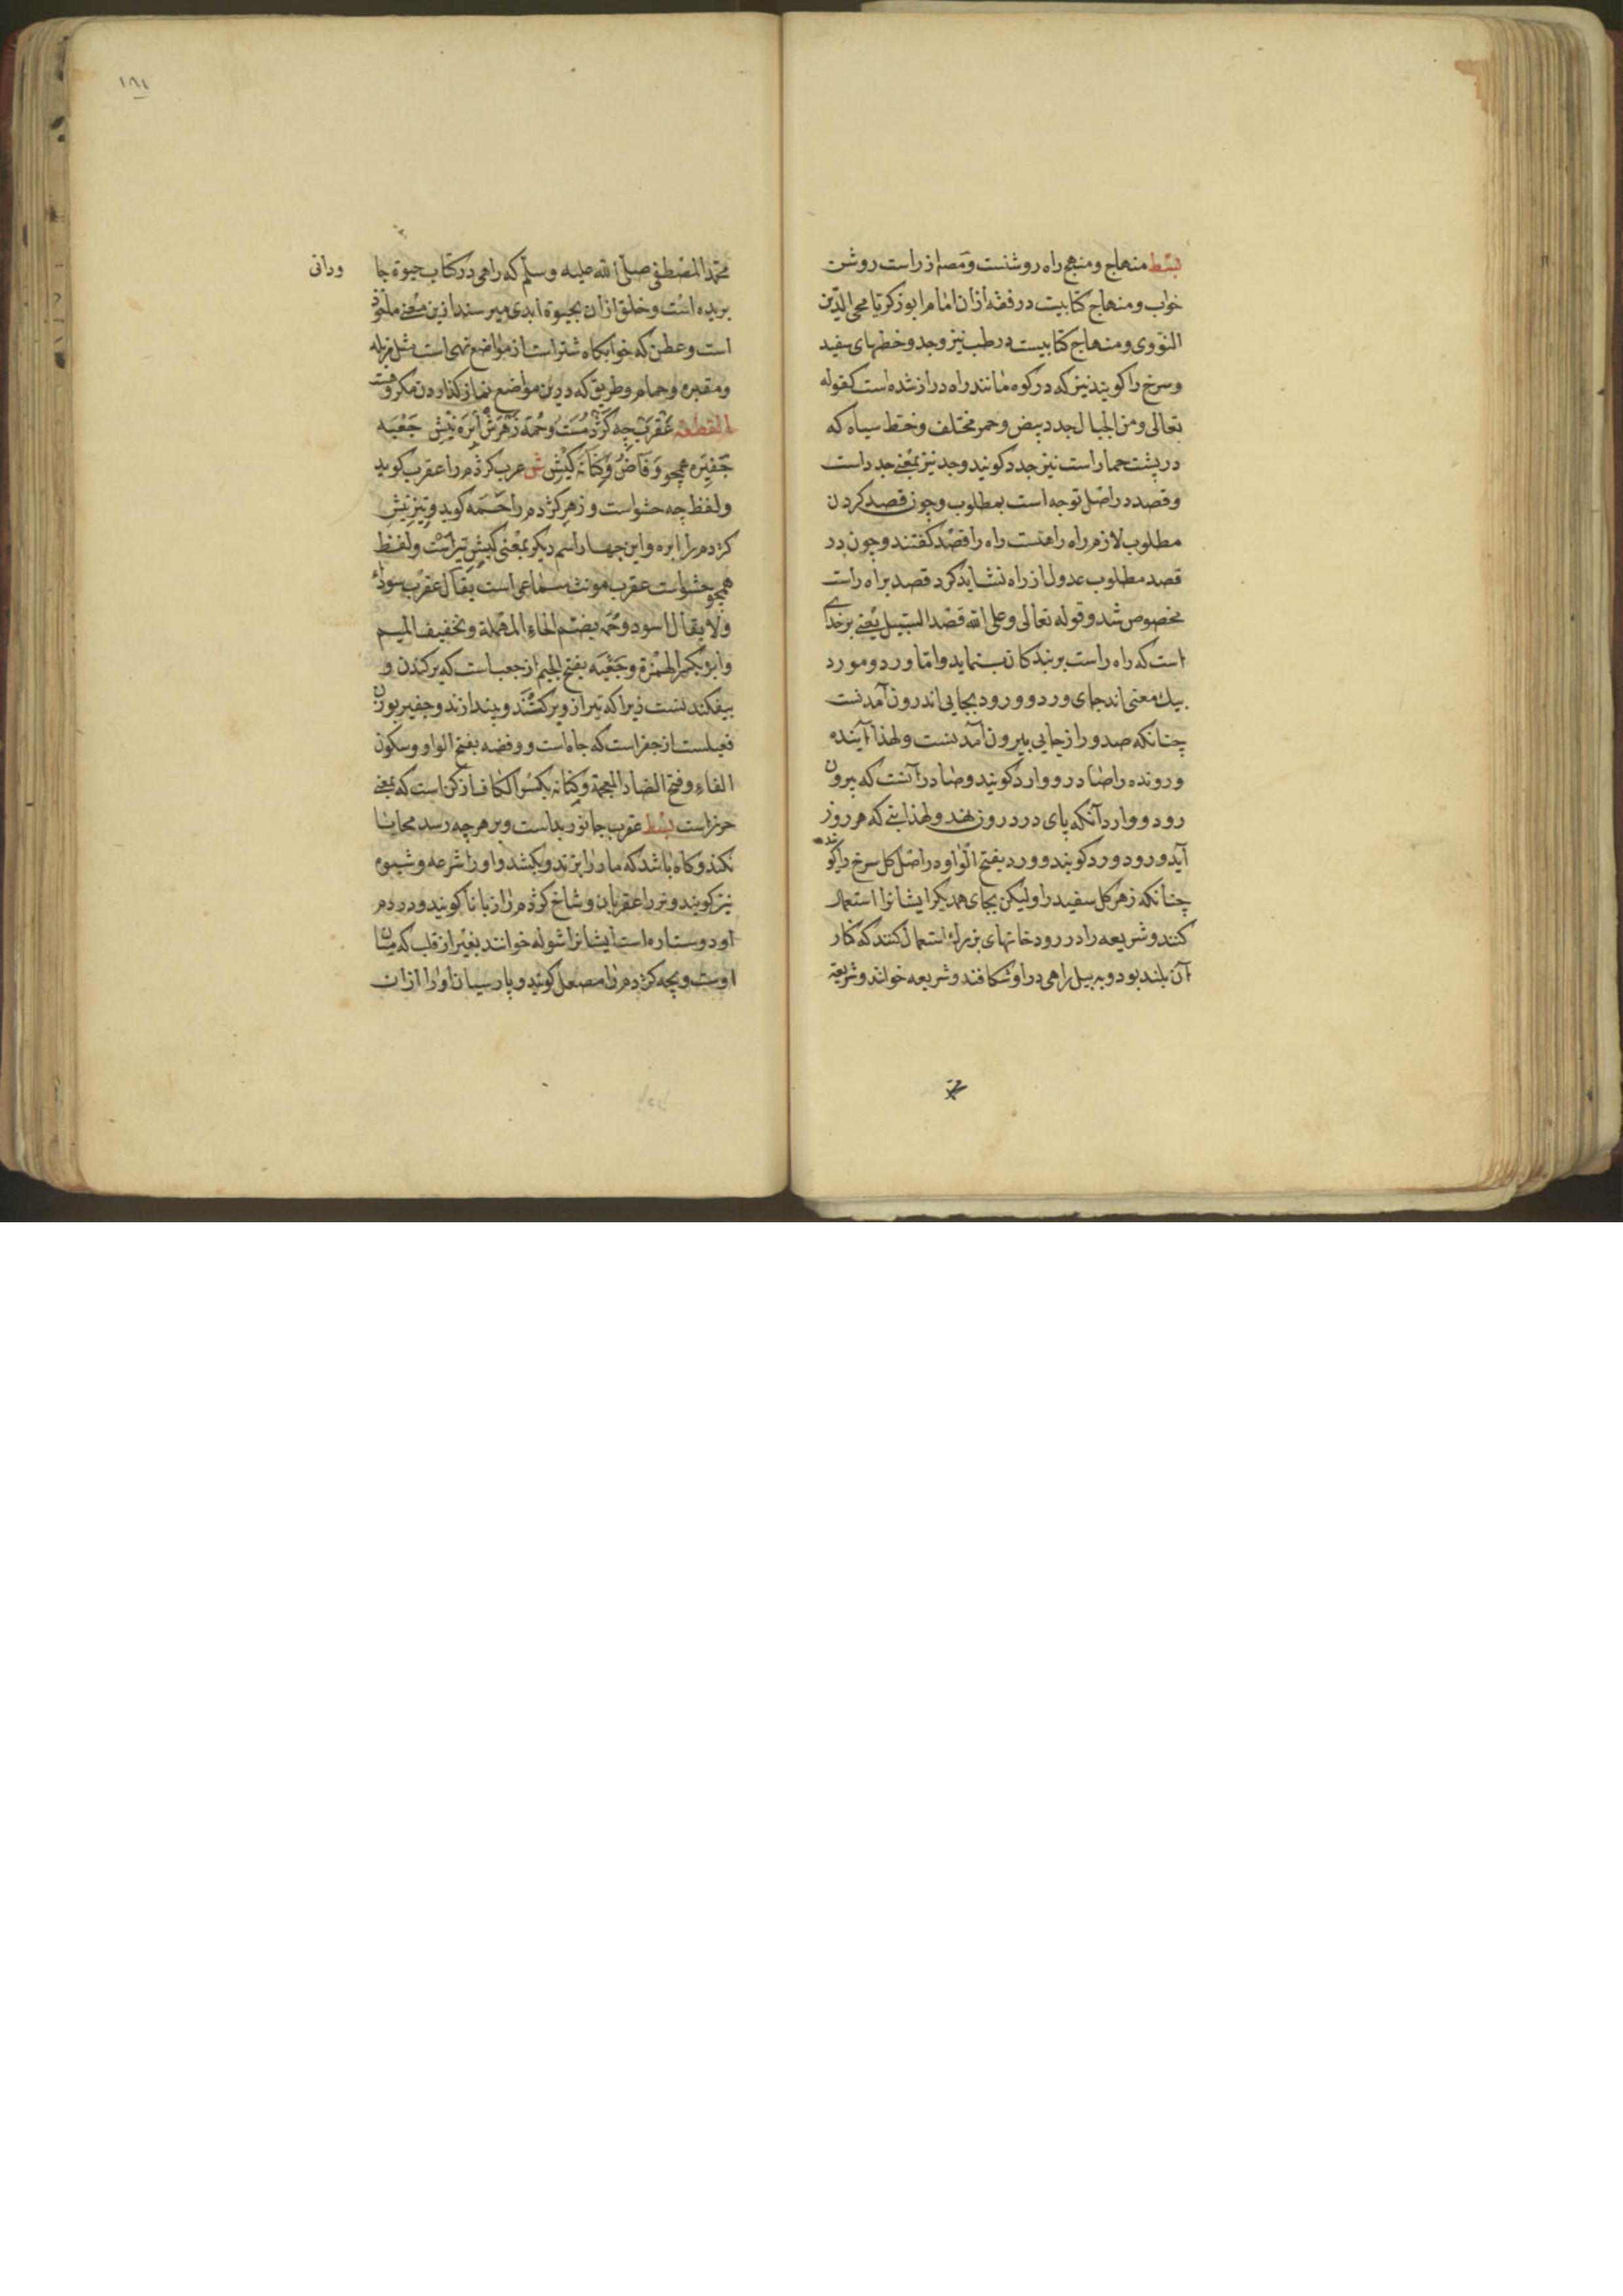 بسط منهاج و منهج راه روشنست و مصه از راست روشن
خواب و منهاج کتابیت در فقه ازان امام ابو زکریا محی الدین
النووی و منهاج کتابیست در طب نیز وجد و خطهای سفید
و سرخ را کویند نیز که در کوه مانند راه دراز شده است کقوله
تعالی و من الجبال جدد بیض و حمر مختلف و خط سیاه که
در پشت حمار است نیز جدد کویند وجد نیز بمعنی جد راست
و قصد در اصل توجه است بمطلوب وچون قصد کردن
مطلوب لازم راه راهتست راه را قصد کفتند وچون در
قصد مطلوب عدول از راه نشاید کرد قصد براه راست
مخصوص شد و قوله تعالی وعلی الله قصد السبیل یعنی بر خدای
است که راه راست بر بندکان بنماید واما ورد و مورد
بیك معنی اند جای ورد و ورود بجایی اندرون آمدنست
چنانکه صدور از جایی بیرون آمدنست ولهذا آینده
و رونده را صادر و وارد کویند و صادر آنست که بیرون
رود و وارد آنکه پای در درون نهد ولهذا تبی که هر روز
آید ورود ورد کویند و ورد بفتح الواو در اصل کل سرخ را کویند
چنانکه زهر کل سفید را ولیکن بجای همدیکر ایشانرا استعمال
کنند و شریعه را در رودخانهای بزرك استعمال کنند که کنار
آن بلند بود و به بیل راهی در او شکافند و شریعه خوانند و شریعة
محمد المصطفی صلی الله علیه وسلم که راهی در کتاب حیوة جا ودانی
بریده است و خلق ازان بحیوة ابدی میرسند ازین معنی ماخوذ
است و عطن که خوابکاه شتر است از مواضع نهی است مثل مزبله
و مقبره و حمام و طریق که درین مواضع نماز کذاردن مکروهست
القطعة عقرب چه کژدمست و حمة زهرش ابره نیش جعبه
جفیره همچو وفاض و کنانه کیش ش عرب کژدم را عقرب کوید
و لفظ چه حشو است و زهر کژدم را حمه کوید و نیز نیش
کژدم را ابره و این چهار اسم دیکر بمعنی کیش تیر است و لفظ
همچو حشو است عقرب مونث سماعی است یقال عقرب سوداء
ولا یقال اسود و حمه بضم الحاء المهملة و تخفیف المیم
وابره بکسر الهمزة و جعبه بفتح الجیم از جعب است که برکندن و
بیفکندنست زیرا که تیر ازو برکشند و بیندازند و جفیر بوزن
فعیلست از جفر است که چاه است و وفضه بفتح الواو و سکون
الفاء و فتح الضاد المعجمة و کنانه بکسر الکاف از کن است که بمعنی
حرز است بسط عقرب جانور بد است و بر هر چه رسد محابا
نکند و کاه باشد که مار را بزند و بکشد و او را شرعه و شبوه
نیز کویند و نر را عقربان و شاخ کژدم را زبانا کویند و در دم
او دو ستاره است ایشانرا شوله خوانند بغیر از قلب که میان
اوست و بچه کژدم را مصعل کویند و پارسیان او را ازان
۱۸۱